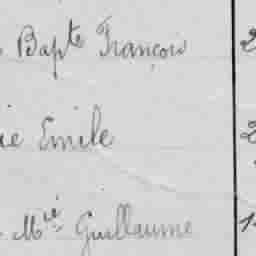 Bapte François
Emile
Mie Guillaume